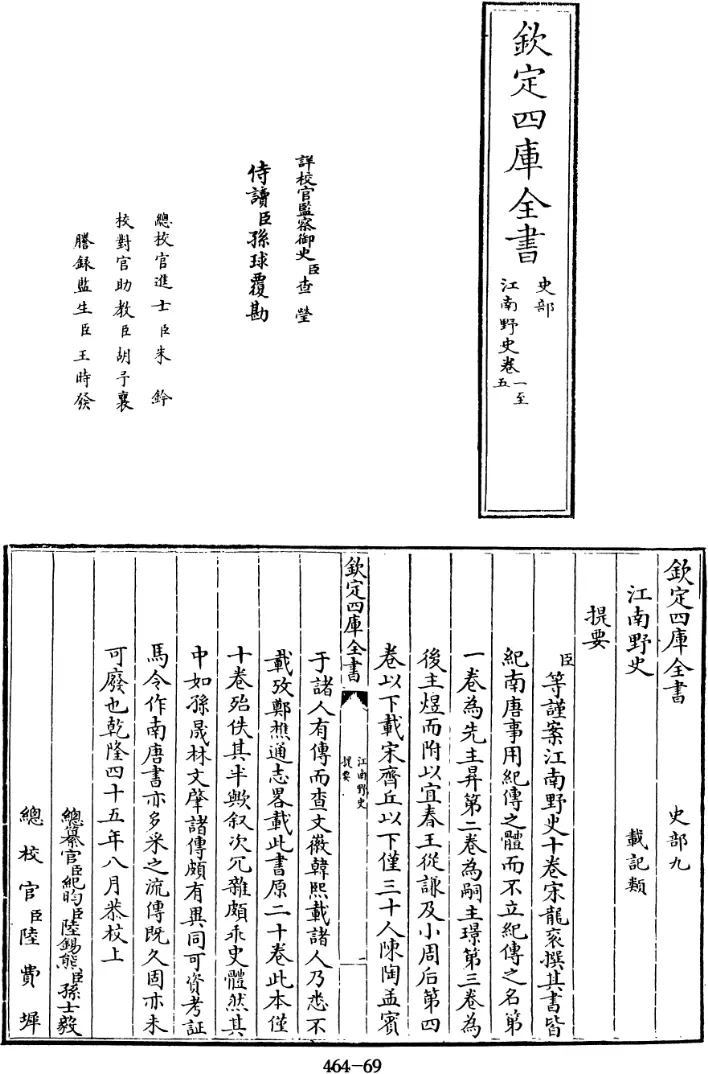 欽定四庫全書
史部
江南野史卷一至五
詳校官監察御史臣查瑩
侍讀臣孫球覆勘
總校官進士臣朱鈐
校對官助教臣胡予襄
謄錄監生臣王時發
欽定四庫全書 史部九
江南野史 載記類
提要
臣等謹案江南野史十卷宋龍衮撰其書皆
紀南唐事用紀傳之體而不立紀傳之名第
一卷為先主昇第二卷為嗣主璟第三卷為
後主煜而附以宜春王從謙及小周后第四
卷以下載宋齊丘以下僅三十人陳陶孟賓
欽定四庫全書
江南野史
提要
一
于諸人有傳而查文徽韓熙載諸人乃悉不
載攷鄭樵通志畧載此書原二十卷此本僅
十卷殆佚其半歟叙次冗雜頗乖史體然其
中如孫晟林文肇諸傳頗有異同可資考証
馬令作南唐書亦多采之流傳既久固亦未
可廢也乾隆四十五年八月恭校上
總纂官臣紀昀臣陸錫熊臣孫士毅
總校官臣陸費墀
464-69